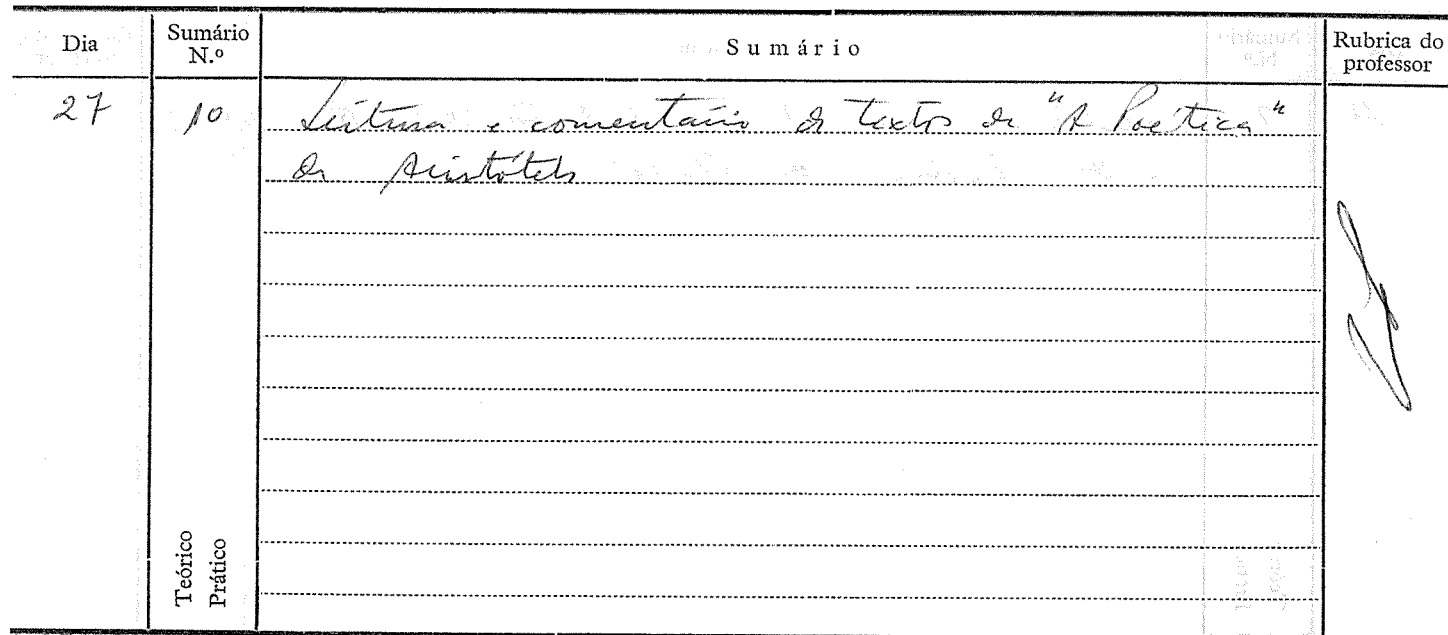 Dia Sumário N.º Sumário Rubrica do professor
27 10 Leitura e comentário de textos de "A Poética"
de Aristóteles
Teórico
Prático